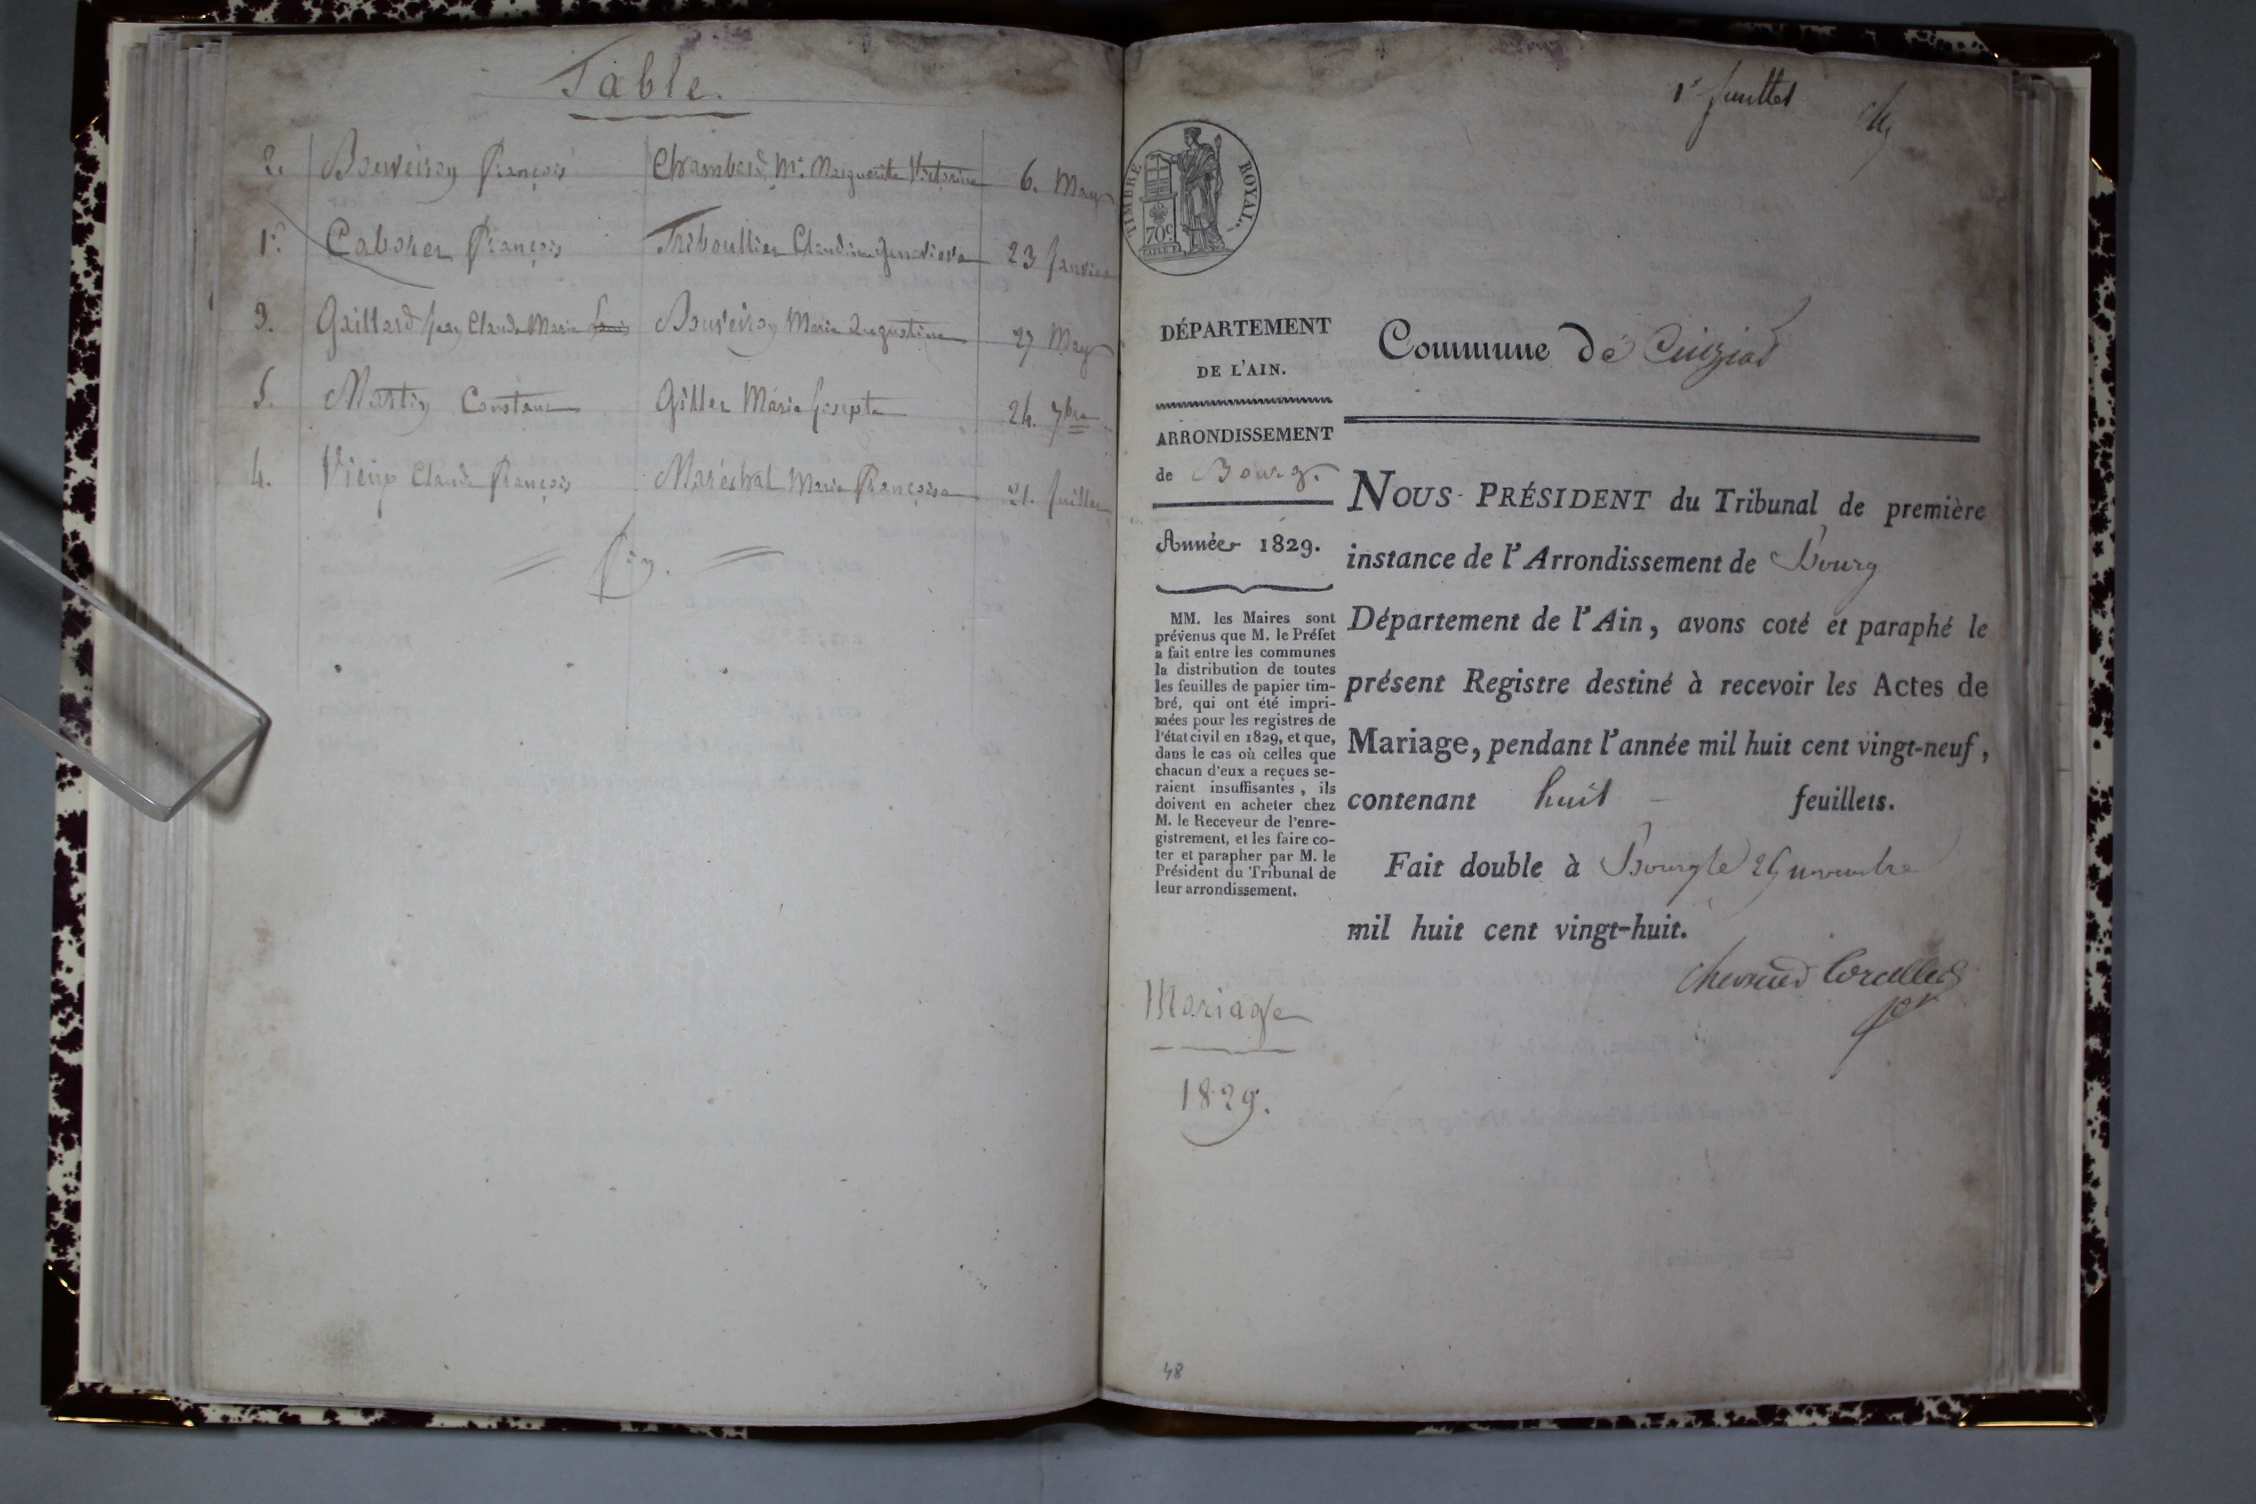 Table.
2. Bouveiron François Chambard, Me. Marguerite Victorine 6. May
1r. Caborer François Triboullier Claudine Genevieve 23 Janvier
3. Gaillard Jean Claude Marie Bouveiron Marie Augustine 27 May
5. Martin Constant Gillet Marie Josephte 24. 7bre
4. Vieux Claude François Maréchal Marie Françoise 21. Juillet
Fin.
1r feuillet
TIMBRE ROYAL
70c
DÉPARTEMENT
DE L'AIN.
ARRONDISSEMENT
de Bourg.
Année 1829.
MM. les Maires sont
prévenus que M. le Préfet
a fait entre les communes
la distribution de toutes
les feuilles de papier tim-
bré, qui ont été impri-
mées pour les registres de
l'état civil en 1829, et que,
dans le cas où celles que
chacun d'eux a reçues se-
raient insuffisantes, ils
doivent en acheter chez
M. le Receveur de l'enre-
gistrement, et les faire co-
ter et parapher par M. le
Président du Tribunal de
leur arrondissement.
Mariage
1829.
Commune de Cuiziat
NOUS PRÉSIDENT du Tribunal de première
instance de l'Arrondissement de Bourg
Département de l'Ain, avons coté et paraphé le
présent Registre destiné à recevoir les Actes de
Mariage, pendant l'année mil huit cent vingt-neuf,
contenant huit feuillets.
Fait double à Bourg le 25 novembre
mil huit cent vingt-huit.
48